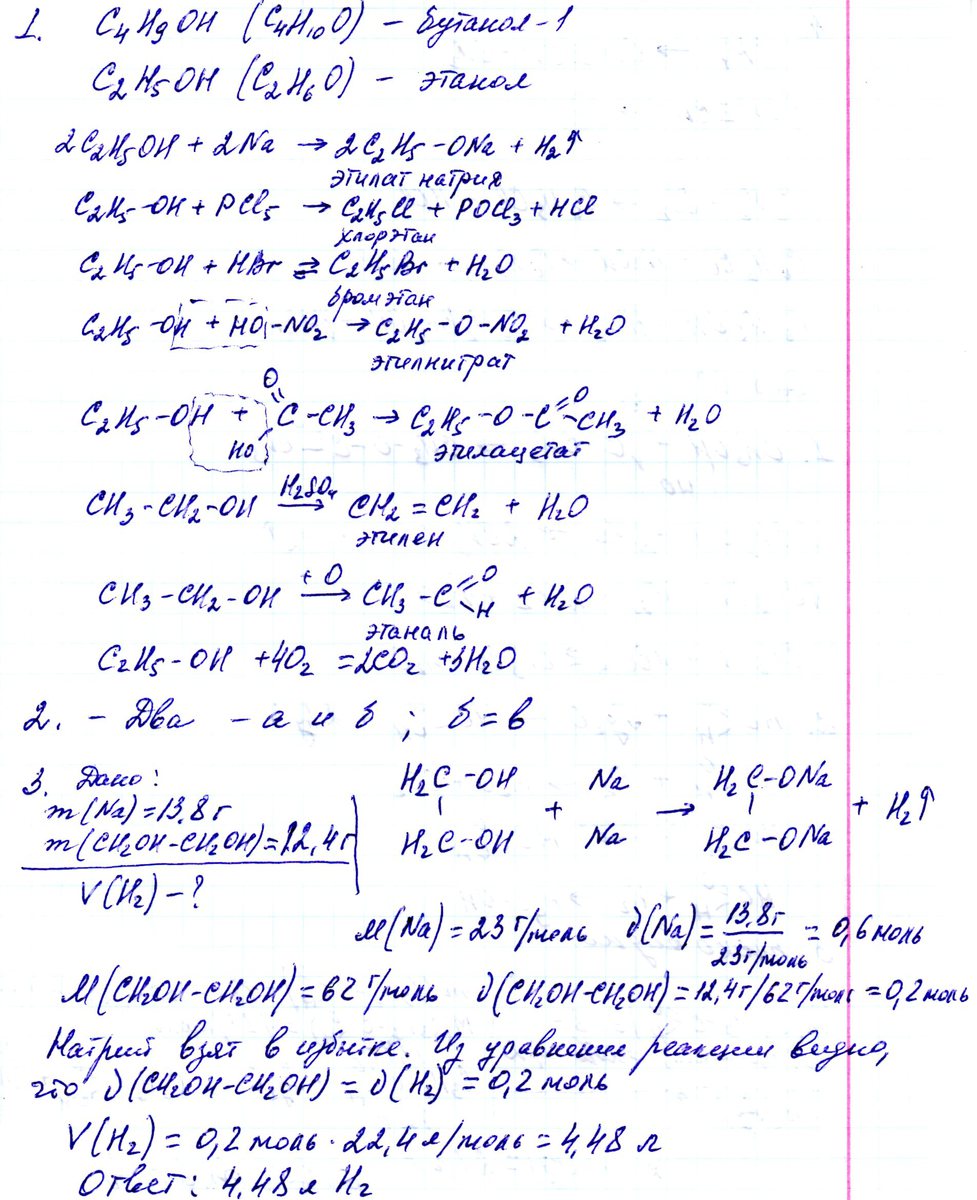 1. C4H9OH (C4H10O) – бутанол-1
C2H5OH (C2H6O) – этанол
2C2H5OH + 2Na → 2C2H5-ONa + H2↑
этилат натрия
C2H5-OH + PCl5 → C2H5Cl + POCl3 + HCl
хлорэтан
C2H5-OH + HBr ⇌ C2H5Br + H2O
бромэтан
C2H5-OH + HO-NO2 → C2H5-O-NO2 + H2O
этилнитрат
O
C2H5-OH + C-CH3 → C2H5-O-C=O-CH3 + H2O
HO этилацетат
CH3-CH2-OH H2SO4→ CH2=CH2 + H2O
этилен
CH3-CH2-OH +O→ CH3-C=O-H + H2O
этаналь
C2H5-OH +4O2 =2CO2 +3H2O
2. – Два – а и б ; б = в
3. Дано:
m(Na)=13,8 г
m(CH2OH-CH2OH)=12,4г
V(H2) – ?
H2C-OH Na H2C-ONa
+ → + H2↑
H2C-OH Na H2C-ONa
M(Na) = 23 г/моль ν(Na) = 13,8г/23г/моль = 0,6 моль
M(CH2OH-CH2OH) = 62 г/моль ν(CH2OH-CH2OH) = 12,4г/62г/моль = 0,2 моль
Натрий взят в избытке. Из уравнение реакции видно,
что ν(CH2OH-CH2OH) = ν(H2) = 0,2 моль
V(H2) = 0,2 моль · 22,4 л/моль = 4,48 л
Ответ: 4,48 л H2